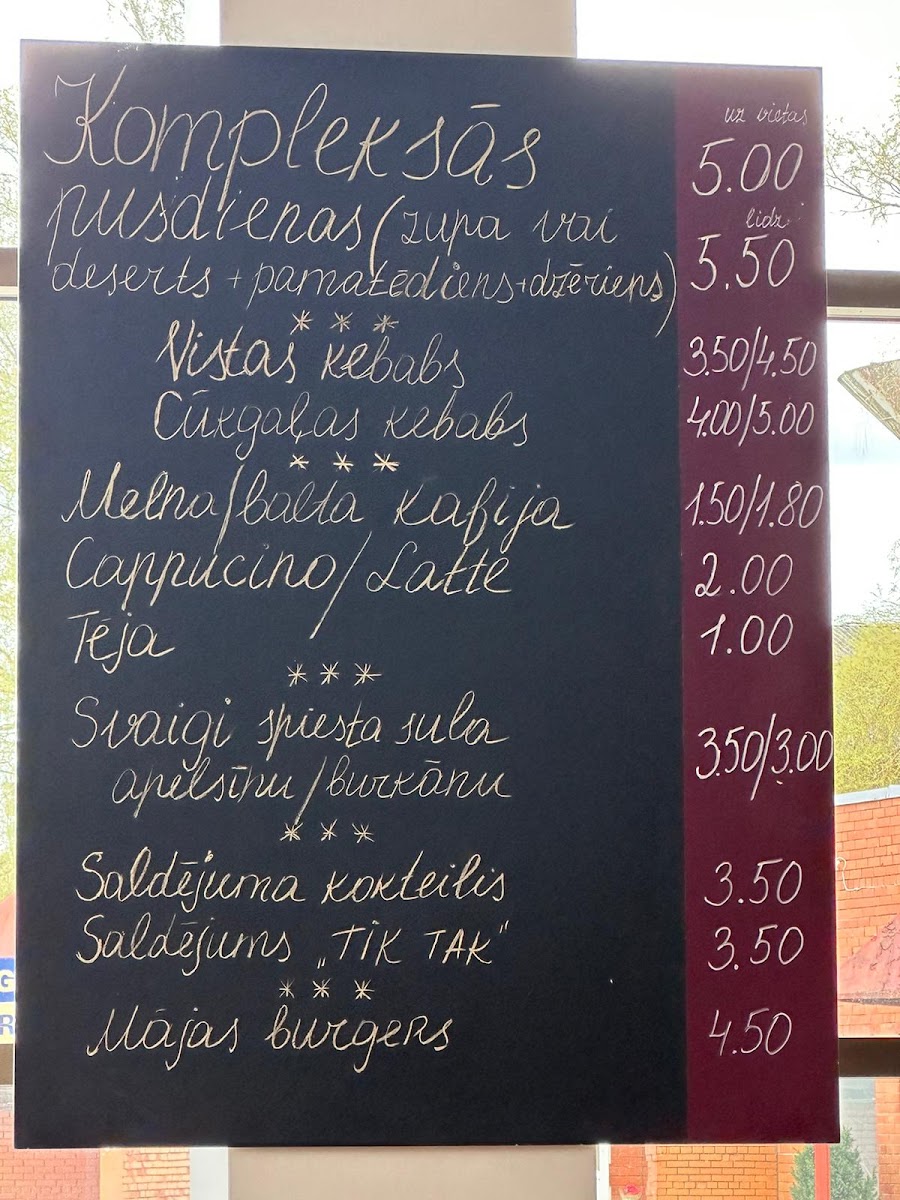 Kompleksās
uz vietas
5.00
pusdienas (zupa vai
līdzi
deserts + pamatēdiens + dzēriens)
5.50
* * *
Vistas kebabs 3.50/4.50
Cūkgaļas kebabs 4.00/5.00
* * *
Melna/balta kafija 1.50/1.80
Cappucino/Latte 2.00
Tēja 1.00
* * *
Svaigi spiesta sula
apelsīnu/burkānu 3.50/3.00
* * *
Saldējuma kokteilis 3.50
Saldējums „TIK TAK" 3.50
* * *
Mājas burgers 4.50
G
R